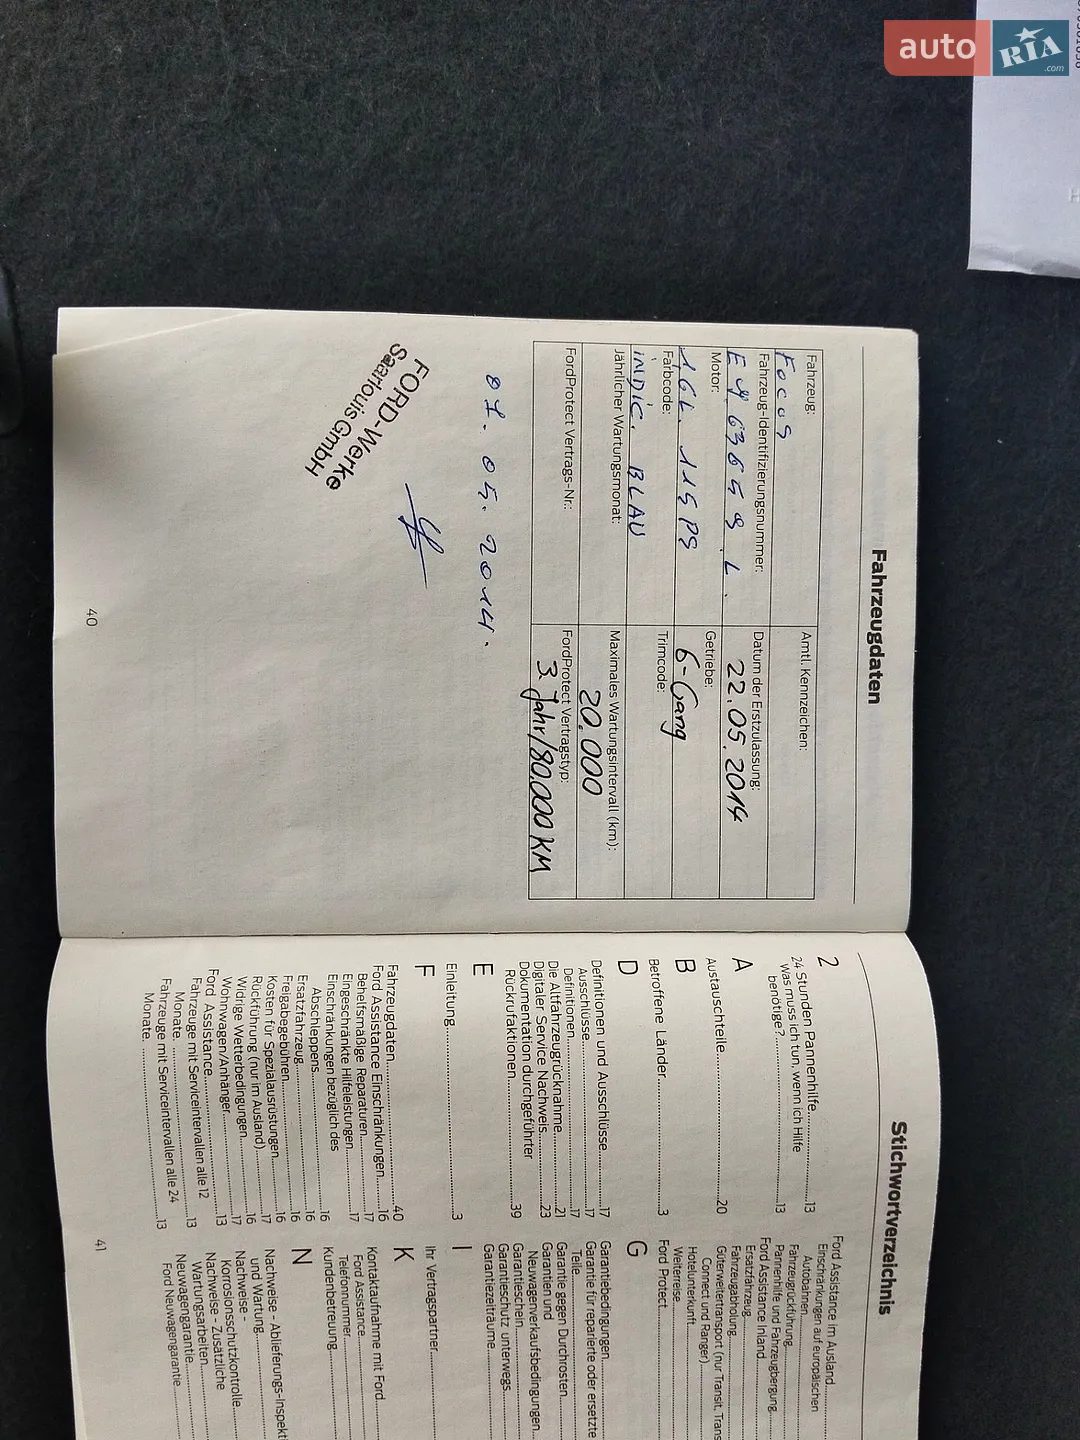 auto RIA.com
Fahrzeugdaten
Fahrzeug:
Focus
Amtl. Kennzeichen:
Fahrzeug-Identifizierungsnummer:
Datum der Erstzulassung:
22.05.2014
Motor:
1 6L. 115 PS
Getriebe:
6-Gang
Farbcode:
indic. BLAU
Trimcode:
Jährlicher Wartungsmonat:
Maximales Wartungsintervall (km):
20.000
FordProtect Vertrags-Nr.:
FordProtect Vertragstyp:
3 Jahr/80.000 KM
05. 2014.
FORD-Werke
Saarlouis GmbH
40
Stichwortverzeichnis
2
24 Stunden Pannenhilfe..........13
Was muss ich tun, wenn ich Hilfe
benötige?..........13
A
Austauschteile..........20
B
Betroffene Länder..........3
D
Definitionen und Ausschlüsse..........17
Ausschlüsse..........17
Definitionen..........17
Die Altfahrzeugrücknahme..........21
Digitaler Service Nachweis..........23
Dokumentation durchgeführter
Rückrufaktionen..........39
E
Einleitung..........3
F
Fahrzeugdaten..........40
Ford Assistance Einschränkungen..........16
Behelfsmäßige Reparaturen..........17
Eingeschränkte Hilfeleistungen..........17
Einschränkungen bezüglich des
Abschleppens..........16
Ersatzfahrzeug..........16
Freigabegebühren..........16
Kosten für Spezialausrüstungen..........16
Rückführung (nur im Ausland)..........17
Widrige Wetterbedingungen..........16
Wohnwagen/Anhänger..........17
Ford Assistance..........13
Fahrzeuge mit Serviceintervallen alle 12
Monate..........13
Fahrzeuge mit Serviceintervallen alle 24
Monate..........13
Ford Assistance im Ausland
Einschränkungen auf europäischen
Autobahnen
Fahrzeugrückführung
Pannenhilfe und Fahrzeugbergung
Ford Assistance Inland
Ersatzfahrzeug
Fahrzeugabholung
Güterweitertransport (nur Transit,
Connect und Ranger)
Hotelunterkunft
Weiterreise
Ford Protect
G
Garantiebedingungen
Garantie für reparierte oder ersetzte
Teile
Garantie gegen Durchrosten
Garantien und
Neuwagenverkaufsbedingungen
Garantieschein
Garantieschutz unterwegs
Garantiezeiträume
I
Ihr Vertragspartner
K
Kontaktaufnahme mit Ford
Ford Assistance
Telefonnummer
Kundenbetreuung
N
Nachweise - Ablieferungs-Inspekt
und Wartung
Nachweise -
Korrosionsschutzkontrolle
Nachweise - Zusätzliche
Wartungsarbeiten
Neuwagengarantie
Ford Neuwagengarantie
41